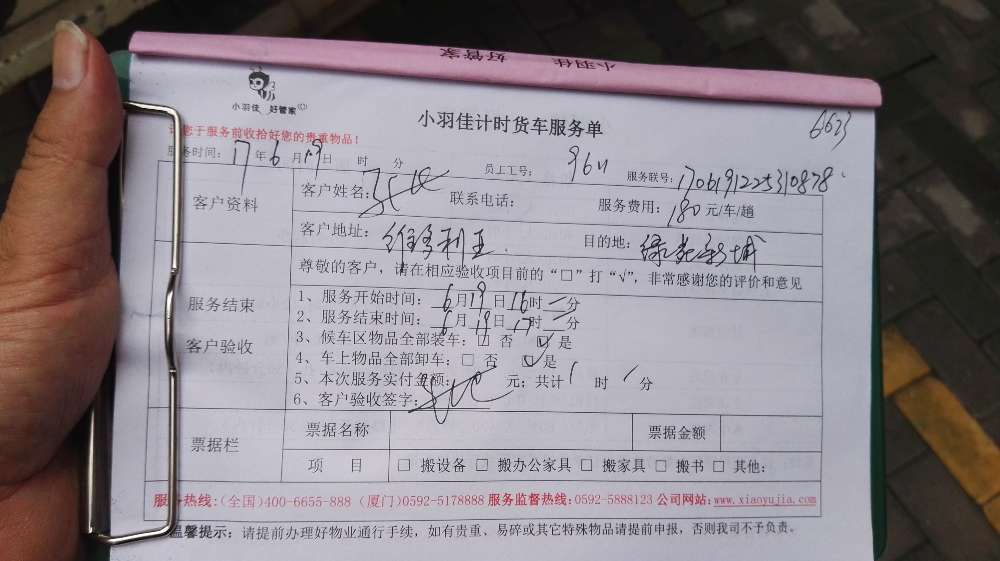 小羽佳 好管家
小羽佳 好管家
小羽佳计时货车服务单
6623
您于服务前收拾好您的贵重物品！
服务时间：17年6月19日 时 分 员工工号：9611 服务联号：1706191225310878
客户资料
客户姓名： 联系电话： 服务费用：180元/车/趟
客户地址：维多利亚 目的地：绿苑新城
尊敬的客户，请在相应验收项目前的“□”打“√”，非常感谢您的评价和意见
服务结束
客户验收
1、服务开始时间：6月19日16时 分
2、服务结束时间：6月19日17时 分
3、候车区物品全部装车：□ 否 ☑ 是
4、车上物品全部卸车：□ 否 ☑ 是
5、本次服务实付金额： 元；共计1时 分
6、客户验收签字：
票据栏
票据名称 票据金额
项 目 □ 搬设备 □ 搬办公家具 □ 搬家具 □ 搬书 □ 其他：
服务热线：(全国)400-6655-888 (厦门)0592-5178888 服务监督热线：0592-5888123 公司网站：www.xiaoyujia.com
温馨提示：请提前办理好物业通行手续，如有贵重、易碎或其它特殊物品请提前申报，否则我司不予负责。